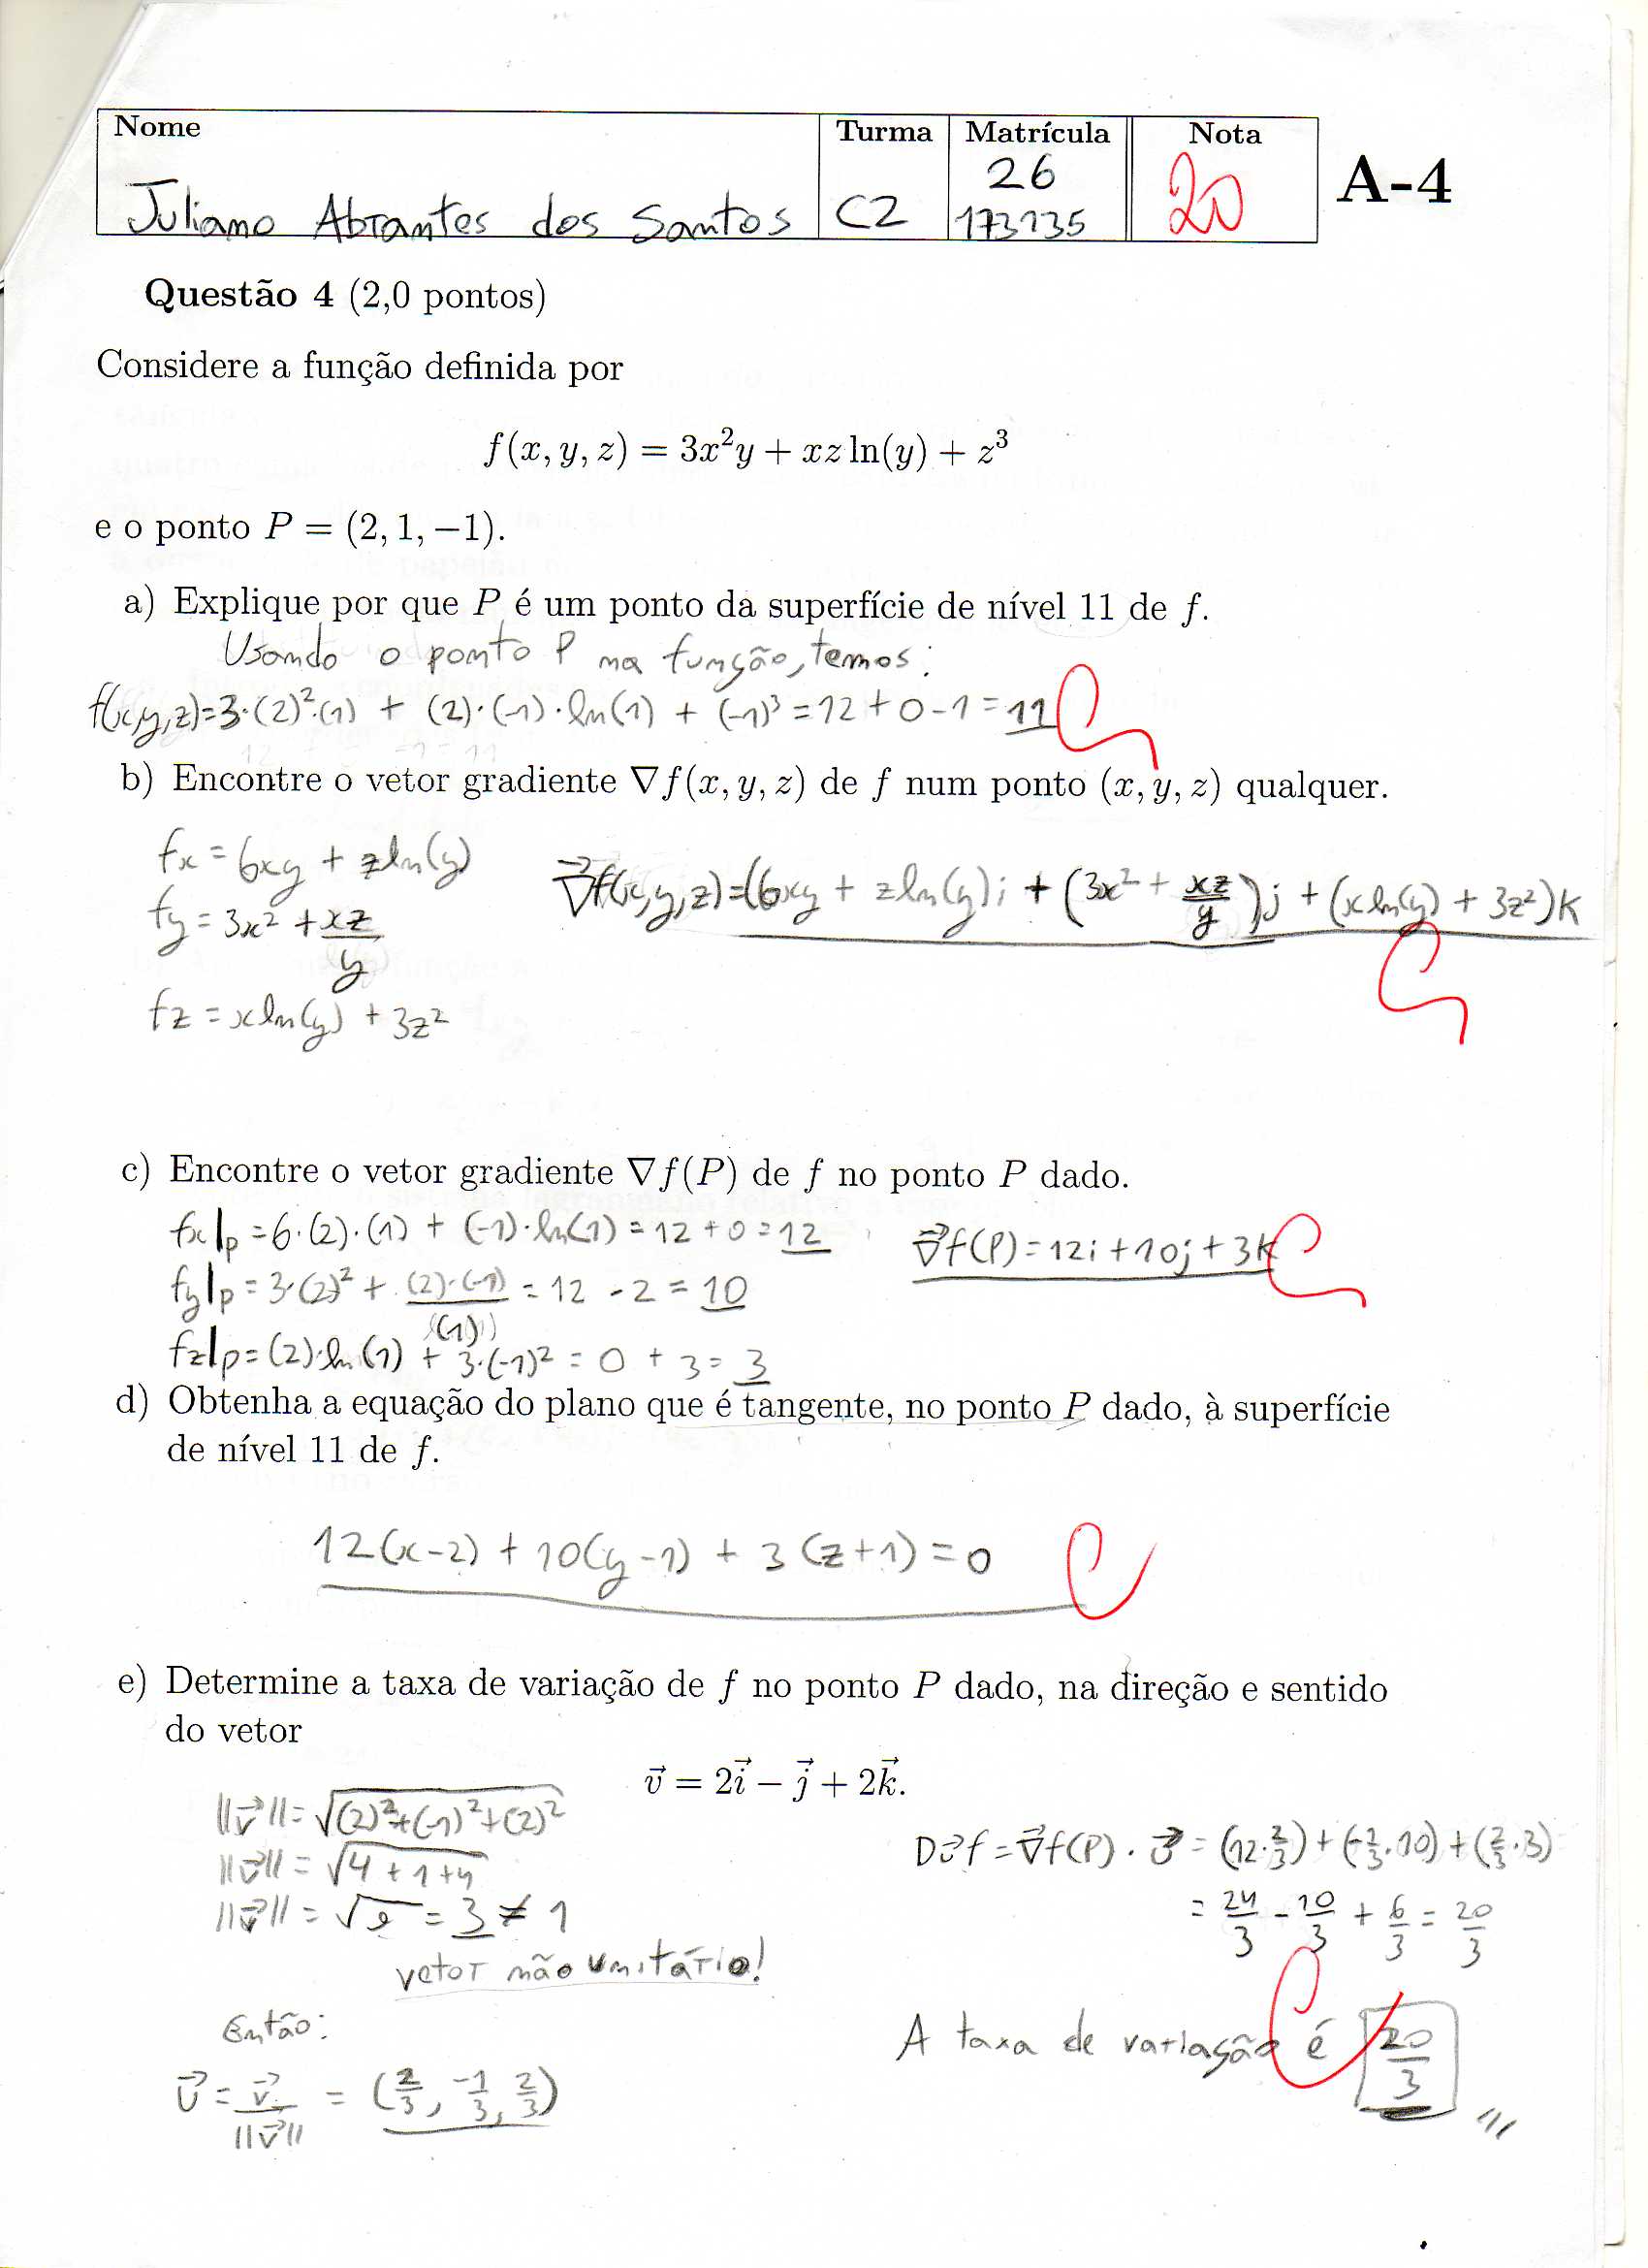 Nome Turma Matrícula Nota
Juliano Abrantes dos Santos C2 26 173135 20 A-4
Questão 4 (2,0 pontos)
Considere a função definida por
f(x, y, z) = 3x²y + xz ln(y) + z³
e o ponto P = (2, 1, −1).
a) Explique por que P é um ponto da superfície de nível 11 de f.
Usando o ponto P na função, temos:
f(x,y,z)=3·(2)²·(1) + (2)·(-1)·ln(1) + (-1)³ = 12 + 0 - 1 = 11
b) Encontre o vetor gradiente ∇f(x, y, z) de f num ponto (x, y, z) qualquer.
fx = 6xy + zln(y)
fy = 3x² + xz/y
fz = xln(y) + 3z²
∇f(x,y,z)=(6xy + zln(y))i + (3x² + xz/y)j + (xln(y) + 3z²)k
c) Encontre o vetor gradiente ∇f(P) de f no ponto P dado.
fx|p = 6·(2)·(1) + (-1)·ln(1) = 12 + 0 = 12
fy|p = 3·(2)² + (2)·(-1)/(1) = 12 - 2 = 10
fz|p = (2)·ln(1) + 3·(-1)² = 0 + 3 = 3
∇f(P) = 12i + 10j + 3k
d) Obtenha a equação do plano que é tangente, no ponto P dado, à superfície
de nível 11 de f.
12(x-2) + 10(y-1) + 3(z+1) = 0
e) Determine a taxa de variação de f no ponto P dado, na direção e sentido
do vetor
v⃗ = 2i⃗ − j⃗ + 2k⃗.
||v⃗|| = √(2)²+(-1)²+(2)²
||v⃗|| = √4+1+4
||v⃗|| = √9 = 3 ≠ 1
vetor não unitário!
Então:
u⃗ = v⃗/||v⃗|| = (2/3, -1/3, 2/3)
Du⃗f = ∇f(P) · u⃗ = (12·2/3) + (-1/3·10) + (2/3·3)
= 24/3 - 10/3 + 6/3 = 20/3
A taxa de variação é 20/3